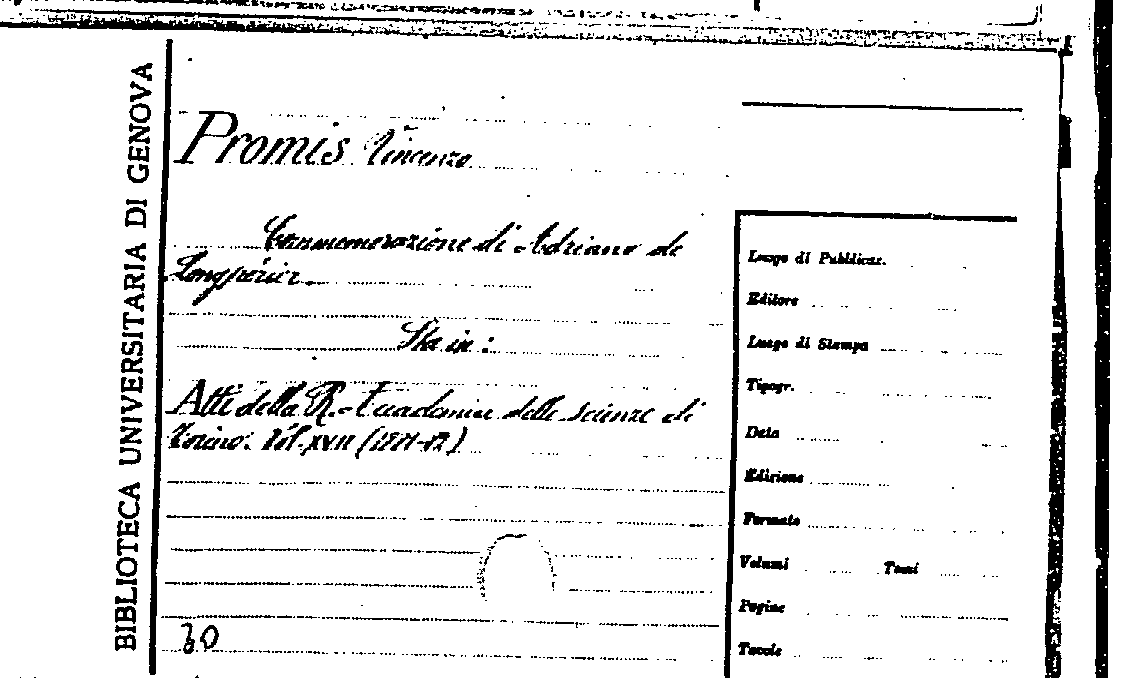 BIBLIOTECA UNIVERSITARIA DI GENOVA
Promis Vincenzo
Commemorazione di Adriano de
Longpérier.
Sta in:
Atti della R. Accademia delle scienze di
Torino. Vol. XVII (1881-82)
30
Luogo di Pubblicaz.
Editore
Luogo di Stampa
Tipogr.
Data
Edizione
Formato
Volumi Tomi
Pagine
Tavole